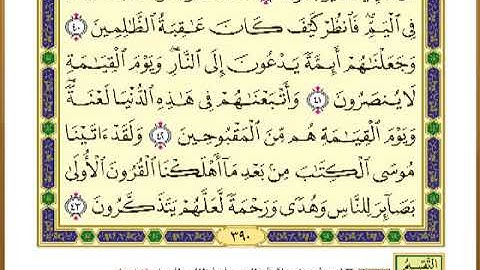 فِي ٱلْيَمِّ فَٱنظُرْ كَيْفَ كَانَ عَٰقِبَةُ ٱلظَّٰلِمِينَ ٤٠
وَجَعَلْنَٰهُمْ أَئِمَّةً يَدْعُونَ إِلَى ٱلنَّارِ وَيَوْمَ ٱلْقِيَٰمَةِ
لَا يُنصَرُونَ ٤١ وَأَتْبَعْنَٰهُمْ فِي هَٰذِهِ ٱلدُّنْيَا لَعْنَةً
وَيَوْمَ ٱلْقِيَٰمَةِ هُم مِّنَ ٱلْمَقْبُوحِينَ ٤٢ وَلَقَدْ ءَاتَيْنَا
مُوسَى ٱلْكِتَٰبَ مِنۢ بَعْدِ مَآ أَهْلَكْنَا ٱلْقُرُونَ ٱلْأُولَىٰ
بَصَآئِرَ لِلنَّاسِ وَهُدًى وَرَحْمَةً لَّعَلَّهُمْ يَتَذَكَّرُونَ ٤٣
٣٩٠